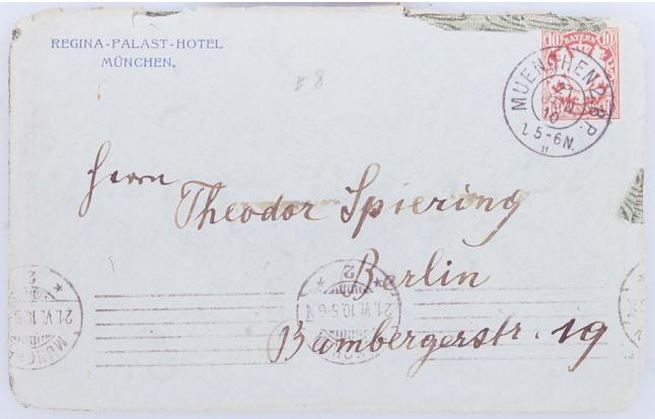 REGINA-PALAST-HOTEL
MÜNCHEN.
# 8
10 BAYERN 10
MUENCHEN 2. B.P.
21
10
5-6N.
Herrn
Theodor Spiering
Berlin
Bambergerstr. 19
21.VI.10.5-6N
2
21.VI.10.5-6N
2